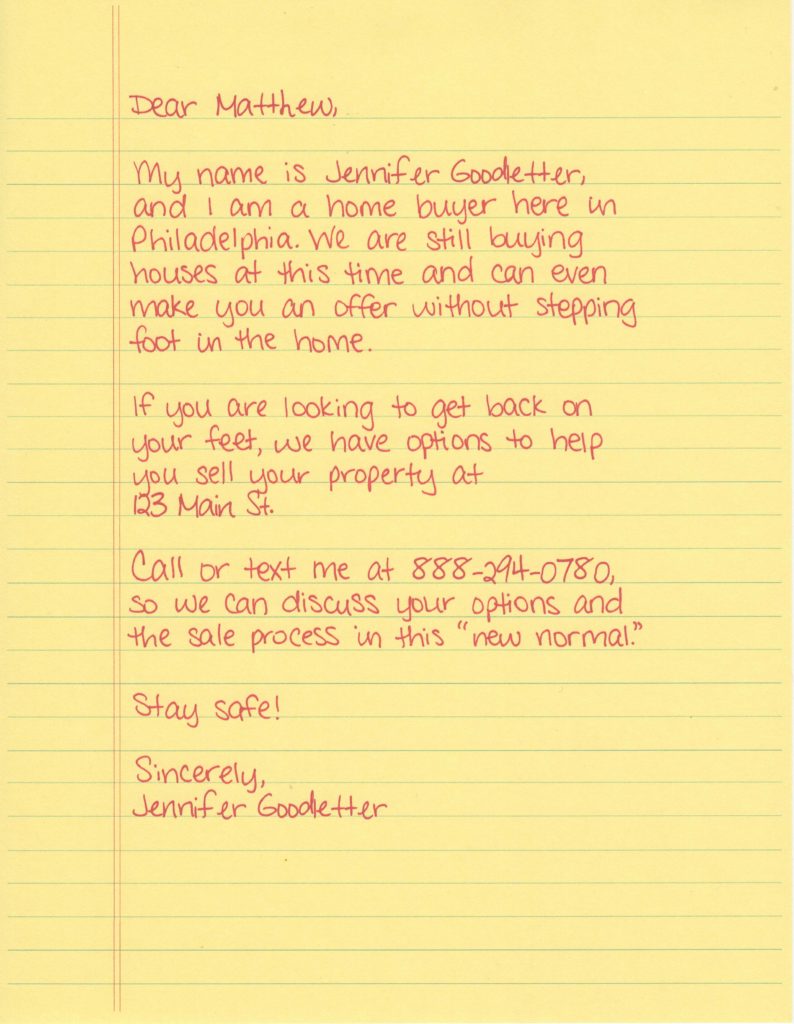 Dear Matthew,
My name is Jennifer Goodletter,
and I am a home buyer here in
Philadelphia. We are still buying
houses at this time and can even
make you an offer without stepping
foot in the home.
If you are looking to get back on
your feet, we have options to help
you sell your property at
123 Main St.
Call or text me at 888-294-0780,
so we can discuss your options and
the sale process in this "new normal."
Stay safe!
Sincerely,
Jennifer Goodletter